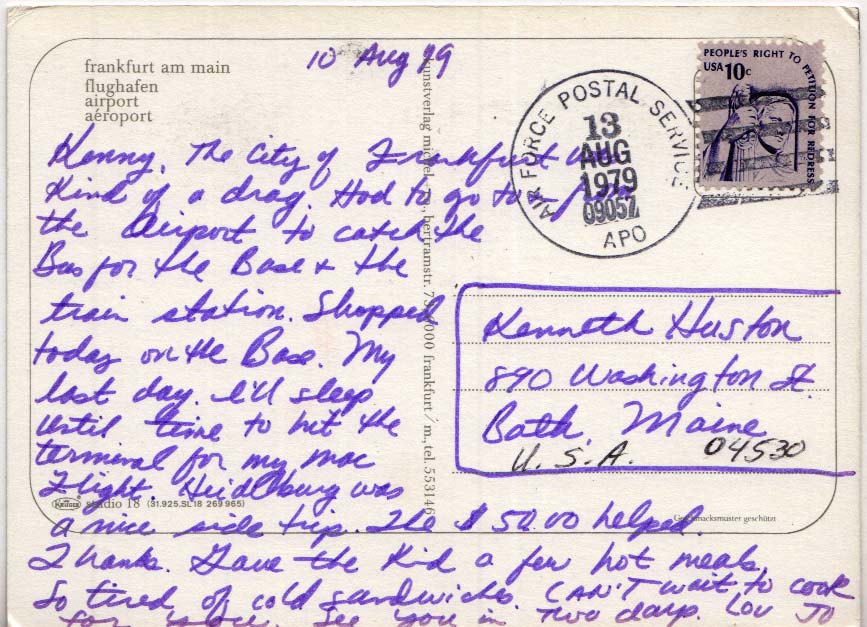 10 Aug 79
frankfurt am main
flughafen
airport
aéroport
Kenny, The City of Frankfurt was
Kind of a drag. Had to go to + from
the Airport to catch the
Bus for the Base + the
train station. Shopped
today on the Base. My
last day. I'll sleep
until time to hit the
terminal for my mac
Flight. Heidlburg was
a nice side trip. The $50.00 helped.
Thanks. Gave the Kid a few hot meals.
So tired of cold sandwiches. CAN'T wait to cook
for you. See you in two days. Lov Jo
KRÜGER studio 18 (31.925.SL18 269965)
kunstverlag michel + bertramstr. 6000 frankfurt/m., tel. 553146
AIR FORCE POSTAL SERVICE
13
AUG
1979
0905Z
APO
PEOPLE'S RIGHT TO PETITION FOR REDRESS
USA 10c
Kenneth Huston
890 Washington St.
Bath, Maine
U.S.A. 04530
Geschmacksmuster geschützt